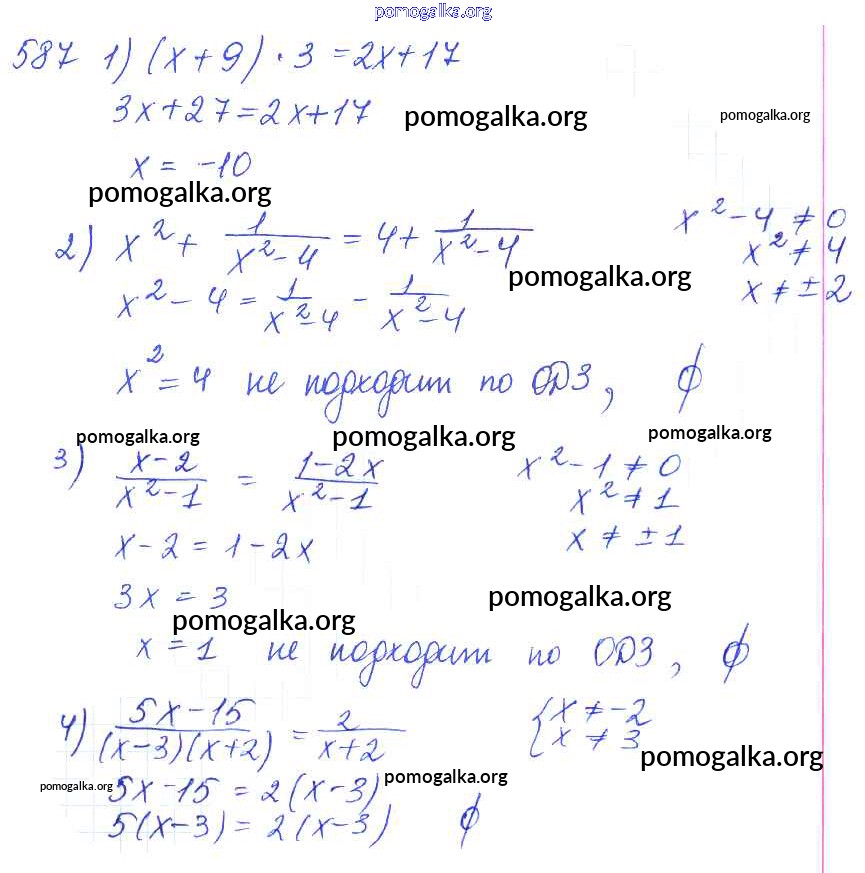 pomogalka.org
587 1) (x+9)·3=2x+17
3x+27=2x+17
pomogalka.org pomogalka.org
x = -10
pomogalka.org
2) x²+ 1/(x²-4) = 4+ 1/(x²-4) x²-4≠0
x²≠4
pomogalka.org
x²-4 = 1/(x²-4) - 1/(x²-4) x≠±2
x²=4 не подходит по ОДЗ, ∅
pomogalka.org pomogalka.org pomogalka.org
3) (x-2)/(x²-1) = (1-2x)/(x²-1) x²-1≠0
x²≠1
x-2=1-2x x≠±1
3x=3
pomogalka.org pomogalka.org
x=1 не подходит по ОДЗ, ∅
4) (5x-15)/((x-3)(x+2)) = 2/(x+2) {x≠-2
x≠3
pomogalka.org
pomogalka.org 5x-15=2(x-3) pomogalka.org
5(x-3)=2(x-3) ∅